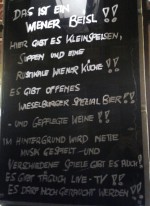 DAS IST EIN
WIENER BEISL !!
HIER GIBT ES KLEINSPEISEN,
SUPPEN UND EINE
RUSTIKALE WIENER KÜCHE !!
ES GIBT OFFENES
WIESELBURGER SPEZIAL BIER !!
- UND GEPFLEGTE WEINE !!
IM HINTERGRUND WIRD NETTE
MUSIK GESPIELT - UND
VERSCHIEDENE SPIELE GIBT ES AUCH !
ES GIBT TÄGLICH LIVE-TV !!
ES DARF NOCH GERAUCHT WERDEN !!